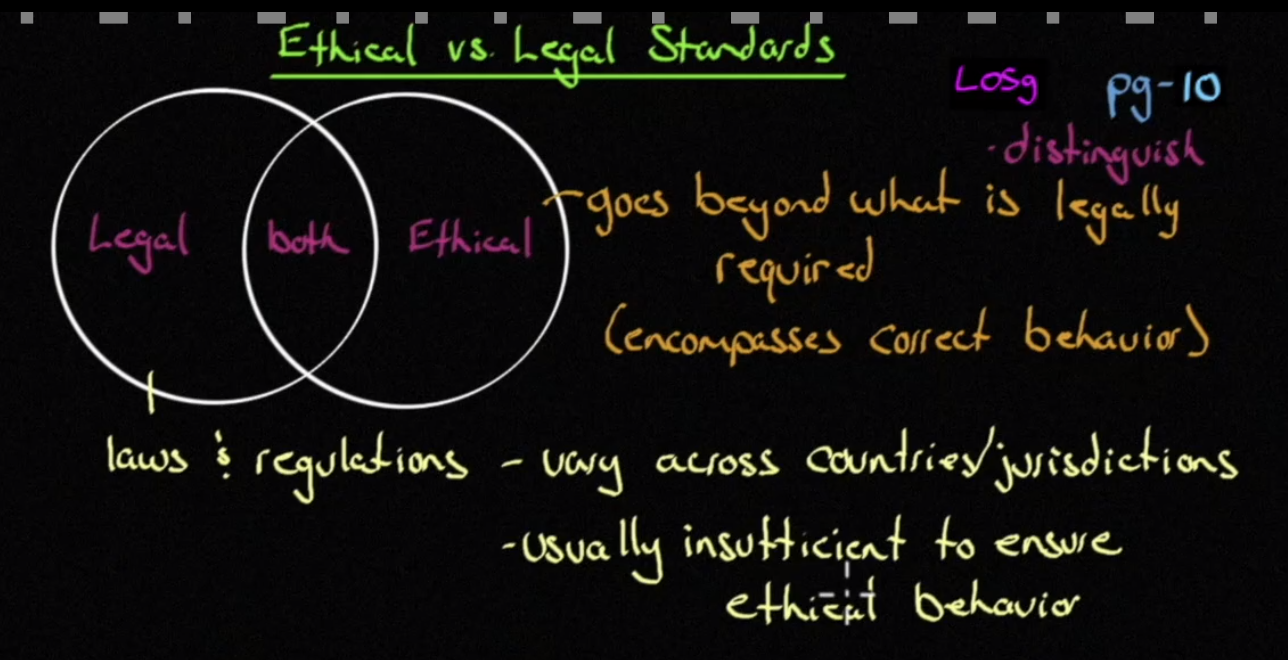 Ethical vs. Legal Standards
LOSg pg-10
·distinguish
Legal both Ethical
goes beyond what is legally
required
(encompasses correct behavior)
laws & regulations - vary across countries/jurisdictions
-usually insufficient to ensure
ethical behavior